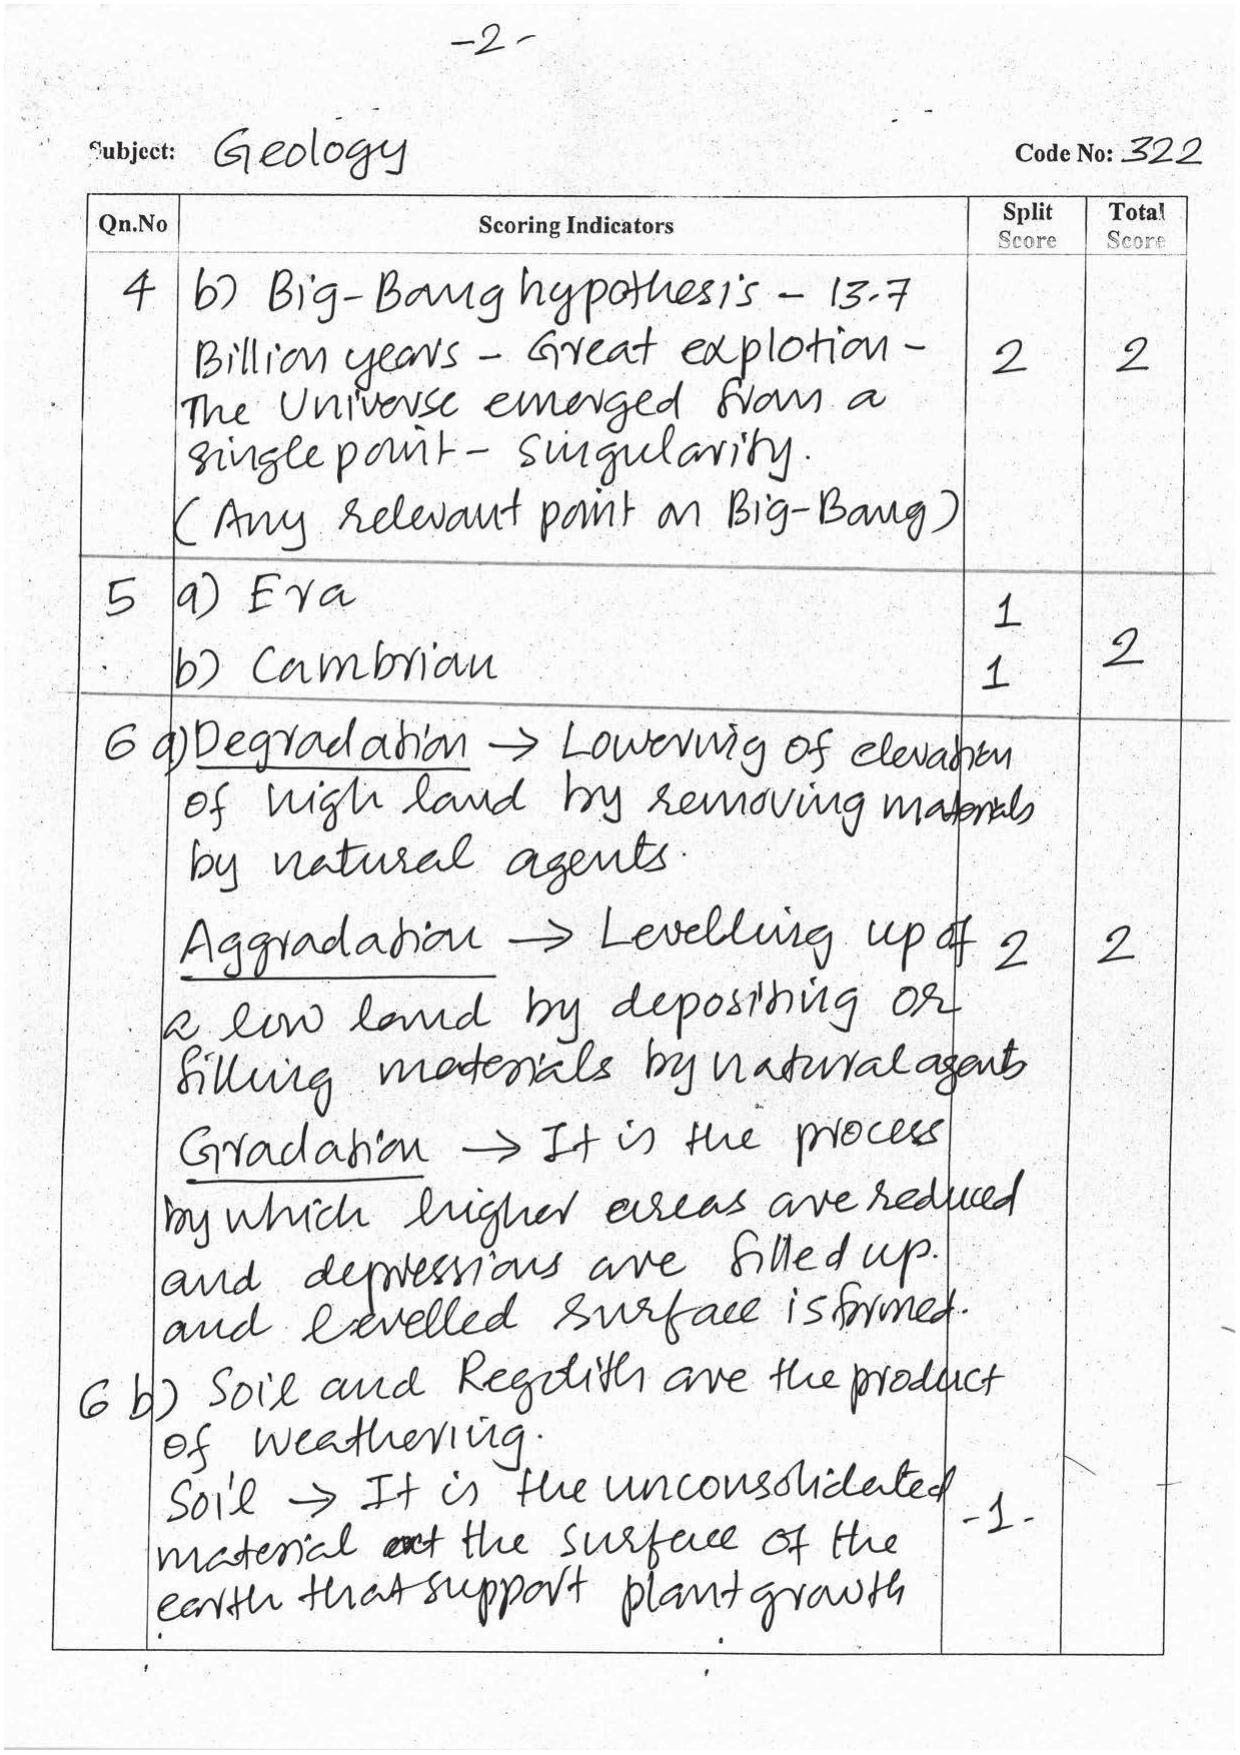 -2-
Subject: Geology
Code No: 322
Qn.No Scoring Indicators Split Score Total Score
4 b) Big-Bang hypothesis - 13.7
Billion years - Great explotion - 2 2
The Universe emerged from a
single point - Singularity.
(Any relevant point on Big-Bang)
5 a) Era 1
2
b) Cambrian 1
6 a) Degradation → Lowering of elevation
of high land by removing materials
by natural agents.
Aggradation → Levelling up of 2 2
a low land by depositing or
filling materials by natural agents
Gradation → It is the process
by which higher areas are reduced
and depressions are filled up.
and levelled surface is formed.
6 b) Soil and Regolith are the product
of weathering.
Soil → It is the unconsolidated
-1-
material at the surface of the
earth that support plant growth